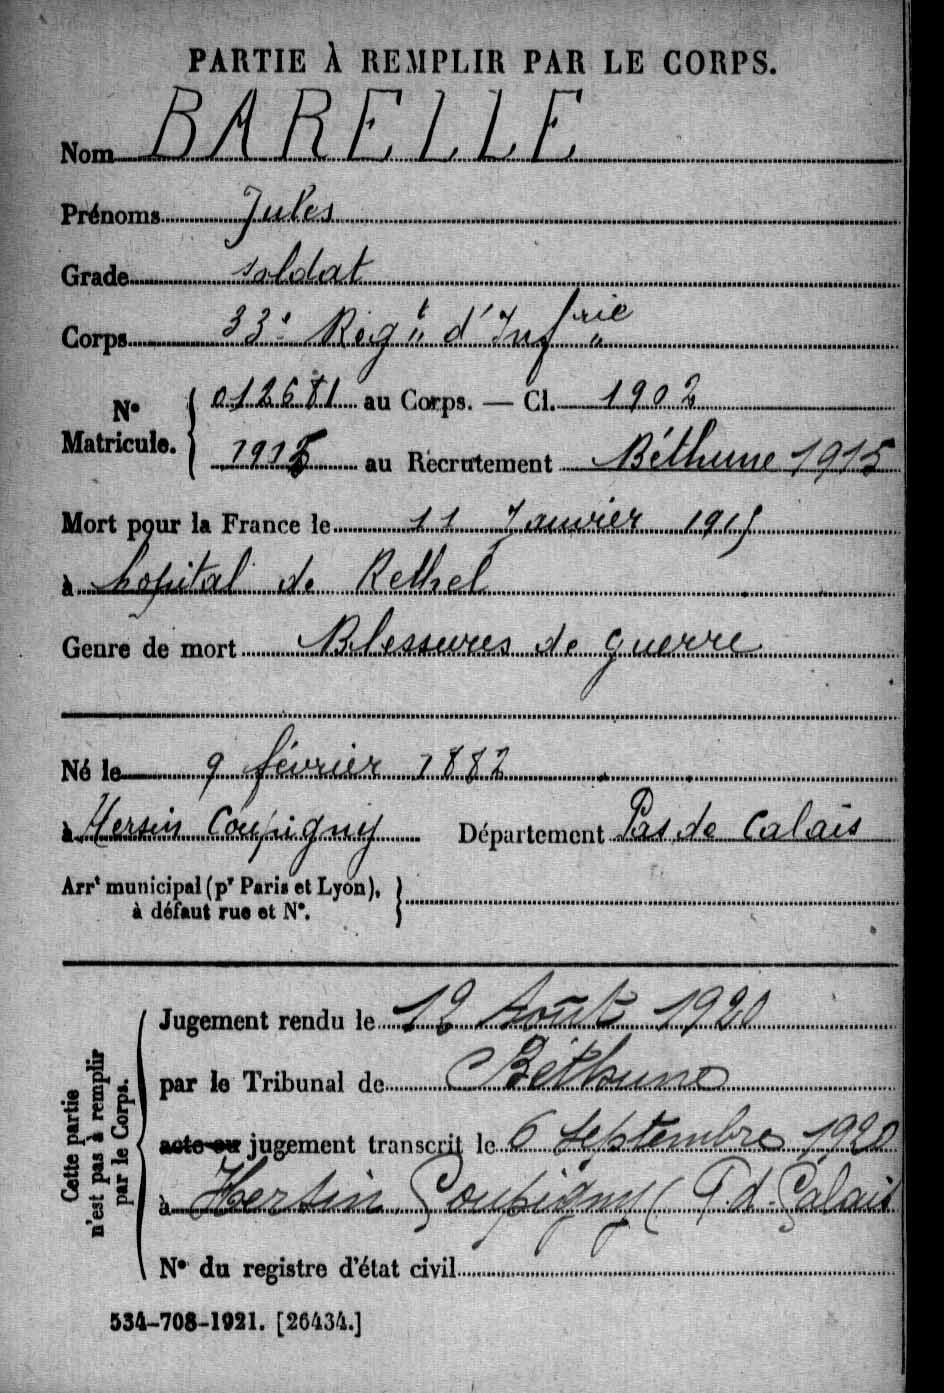 PARTIE À REMPLIR PAR LE CORPS.
Nom BARELLE
Prénoms Jules
Grade soldat
Corps 33e Régt d'Infrie
No Matricule. { 012681 au Corps. — Cl. 1902
1915 au Recrutement Béthune 1915
Mort pour la France le 11 Janvier 1915
à hôpital de Rethel
Genre de mort Blessures de guerre
Né le 9 février 1882
à Hersin Coupigny Département Pas de Calais
Arrt municipal (pr Paris et Lyon),
à défaut rue et No.
Cette partie
n'est pas à remplir
par le Corps.
Jugement rendu le 12 Août 1920
par le Tribunal de Béthune
acte ou jugement transcrit le 6 Septembre 1920
à Hersin Coupigny (P. d. Calais
No du registre d'état civil
534-708-1921. [26434.]